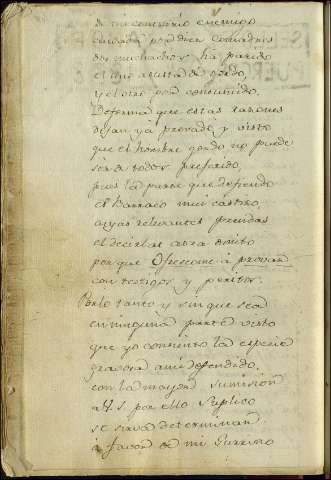 de un contrario enemigo
cuidada por diez comadres
dos muchachos ha parido
el uno asusta de gordo,
y el otro por consumido.
De forma que estas razones
dejan ya provado, y visto
que el hombre gordo no puede
ser de todos preferido,
pues la parte que defiendo
es Barraco mui castizo,
cuyas relevantes prendas
el decirlas aora omito
por que Ofrecome à provar
con testigos y peritos.
Por lo tanto y sin que sea
en ninguna parte visto
que yo consiento la especie
gravosa a mi defendido,
con la mayor sumision
a V.S. por ello Suplico
se sirva determinar
à favor de mi Guarrino